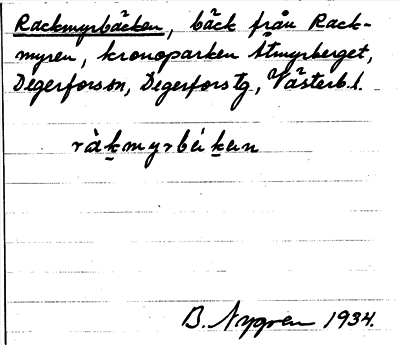 Rackmyrbäcken, bäck från Rack-
myren, kronoparken Åtmyrberget,
Degerforssn, Degerforstg, Västerb.l.
B. Nygren 1934.